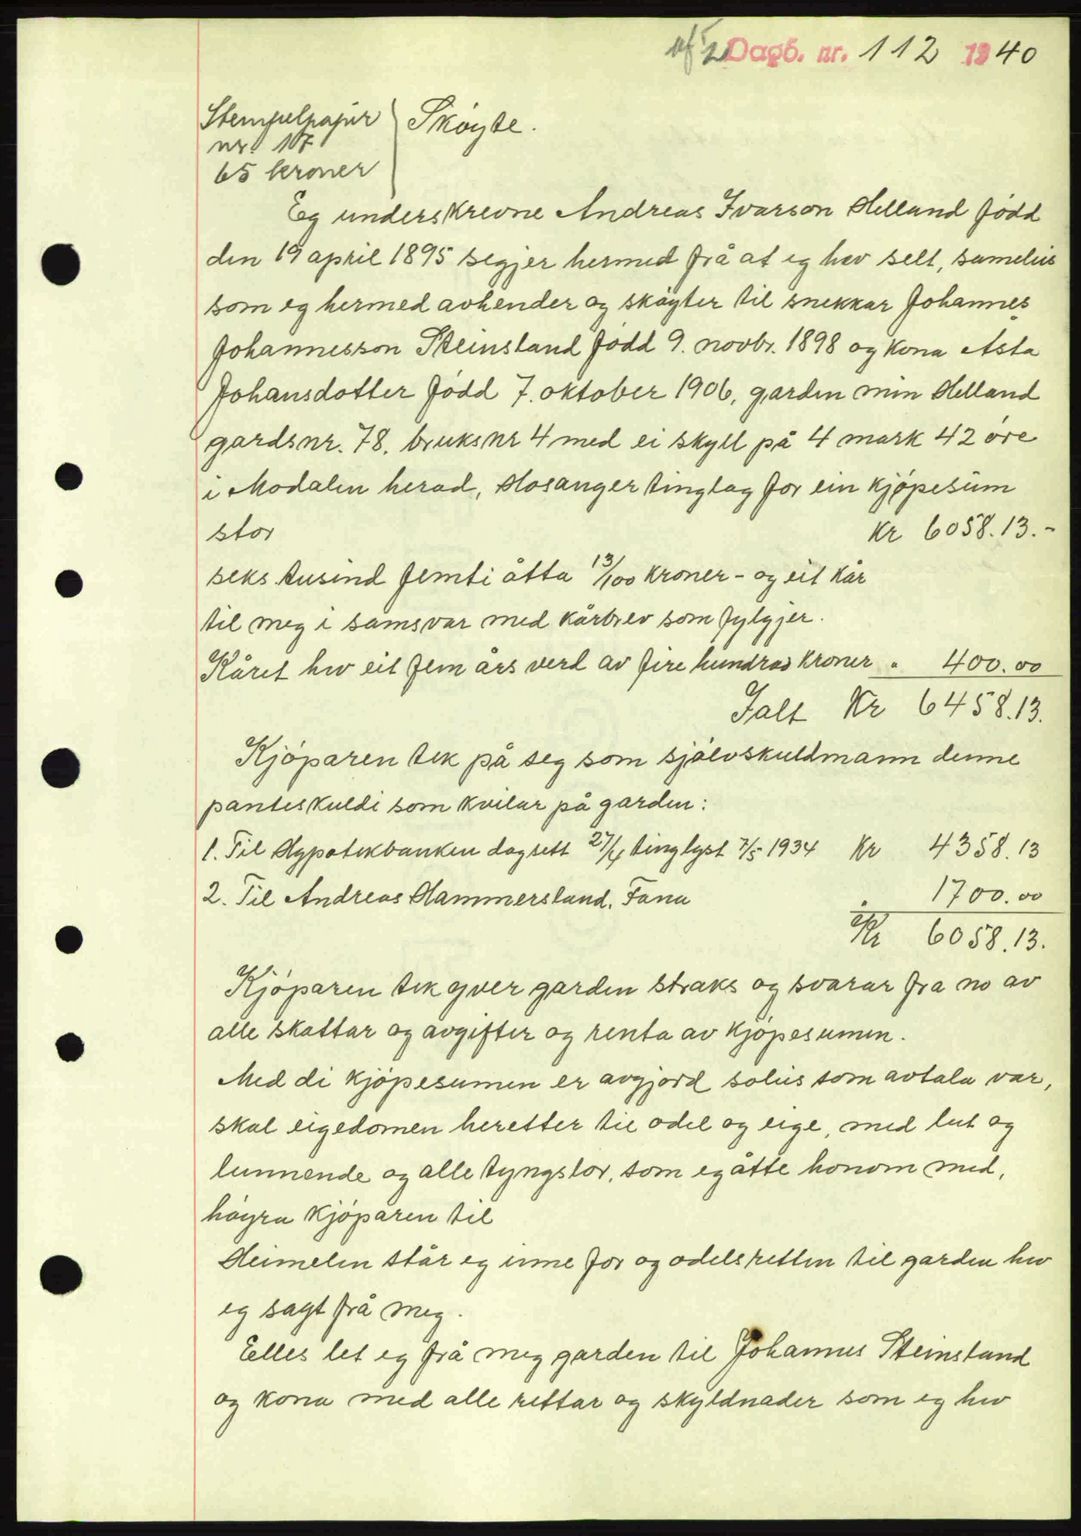 Dagb. nr. 112 1940
Stempelpapir
nr. 17
65 kroner
Skøyte.
Eg underskrevne Andreas Ivarson Helland född
den 19 april 1895 segjer hermed frå at eg hev selt, sameleis
som eg hermed avhender og skøyter til snekkar Johannes
Johannesson Steinsland född 9. novbr. 1898 og kona Åsta
Johansdotter född 7. oktober 1906, garden min Helland
gardsnr. 78. bruksnr 4 med ei skyll på 4 mark 42 øre
i Modalen herad, Hosanger tinglag for ein kjøpesum
stor Kr 6058.13.-
seks tusind femti åtta 13/100 kroner - og eit kår
til meg i samsvar med kårbrev som fylgjer.
Kåret hev eit fem års verd av fire hundrad kroner " 400.00
Ialt Kr 6458.13.
Kjøparen tek på seg som sjølvskuldmann denne
panteskuldi som kvilar på garden:
1. Til Hypotekbanken dagsett 27/4 tinglyst 7/5 1934 Kr 4358.13
2. Til Andreas Hammersland, Fana " 1700.00
Kr 6058.13.
Kjøparen tek yver garden straks og svarar fra no av
alle skattar og avgifter og renta av kjøpesumen.
Med di kjøpesumen er avgjord soleis som avtala var,
skal eigedomen heretter til odel og eige, med lut og
lunnende og alle tyngslor, som eg åtte honom med,
høyra kjøparen til
Heimelen står eg inne for og odelsretten til garden hev
eg sagt frå meg.
Elles let eg frå meg garden til Johannes Steinsland
og kona med alle rettar og skyldnader som eg hev